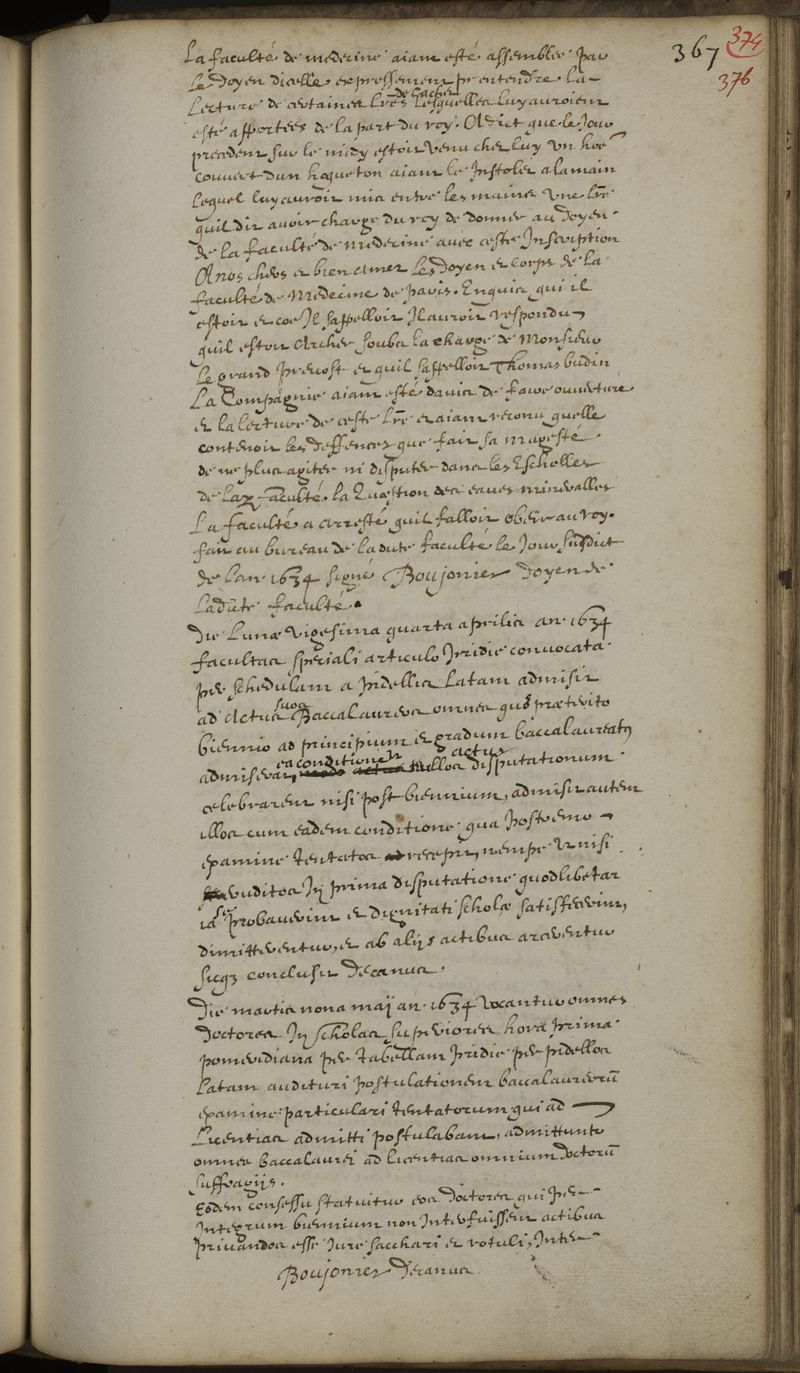 367 374
376
La faculté de medecine aiant esté assemblee par
le Doyen dicelle expressement pr entendre la
Lecture de certaines Lres de Cachet lesquelles luy auroient
esté apportees de la part du roy. A dict que le Jour
precedent sur le midy estoit venu chez luy un hoe
couvert dun hoqueton aiant le Instoler a la main
lequel luy auroit mis entre les mains une Lre
quil dit avoir charge du roy de donner au Doyen
de la faculté de medecine avec ceste Inscription
A nos chers et bien amez les Doyen et Corps de la
faculté de Medecine de paris. Enquis qui il
estoit et coe Il sappelloit Il auroit respondu
quil estoit Archer soubs la charge de Monsieur
le grand prevost et quil sappelloit Thomas budin
La Compagnie aiant esté davis de faire ouverture
et la lecture de ceste Lre et aiant reconu quelle
contenoit les deffences que fait sa magesté
de ne plus agiter ni disputer dans les Escholles
de lad faculté la Question des eaues mineralles
La faculté a arresté quil falloit obeir au roy.
fait au bureau de ladite faculté le Jour susdict
de lan 1634 signé Boujonier doyen de
Ladite faculté.
Die Lunæ vigesima quarta aprilis an 1634
facultas speciali articulo pridie convocata
per schedulam a pidellis Latam admisit
ad Actus suos Baccalaureos omnes quos præterito
biennio ad principium et gradum baccalaureatus
admiserat, ea conditione nullos actus disputationum
celebrarent nisi post biennium, admisit autem
illos cum eadem conditione qua postremo
examine tentatos recepit, nempe ut nisi
eruditos In prima disputatione quodlibetar
ia se probaverint et dignitati scholæ satisfecerint,
dimitterentur, et ab alijs actibus arcerentur
sicq conclusit Decanus.
Die martis nona maij an 1634 vocantur omnes
doctores In scholas superiores hora prima
pomeridiana per tabellam pridie per pidellos
Latam audituri postulationem baccalaureorū
examine particulari tentatorum qui ad
Licentias admitti postulabant, admittuntr
omnes baccalaurei ad licentias omnium doctorū
suffragijs.
Eodem consessu statuitur eos doctores qui per
Integrum biennium non Interfuissent actibus
privandos esse Jure sacchari et rotuli, Inter
Boujonier decanus